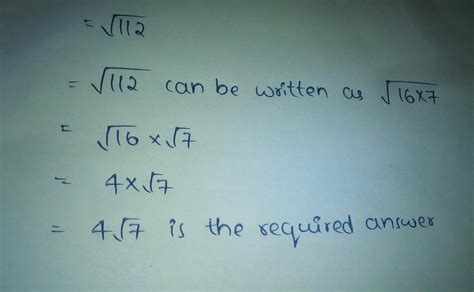 = √112
= √112 can be written as √16×7
= √16 × √7
= 4×√7
= 4√7 is the required answer